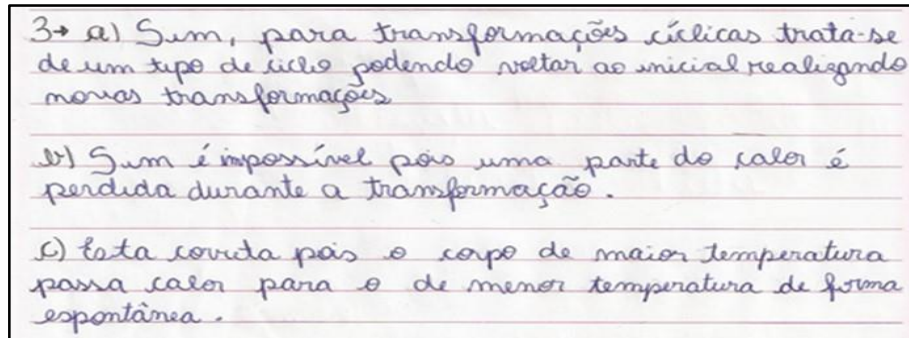 3→ a) Sim, para transformações cíclicas trata-se
de um tipo de ciclo podendo voltar ao inicial realizando
novas transformações
b) Sim é impossível pois uma parte do calor é
perdida durante a transformação.
c) Esta correta pois o corpo de maior temperatura
passa calor para o de menor temperatura de forma
espontânea.